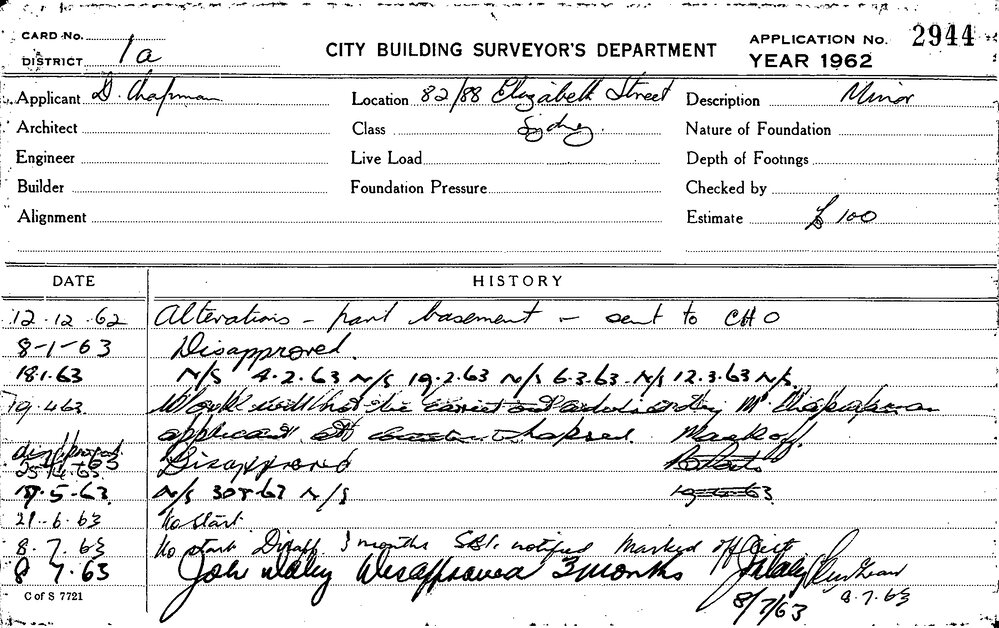 CARD No.
DISTRICT 1a
CITY BUILDING SURVEYOR'S DEPARTMENT
APPLICATION No. 2944
YEAR 1962
Applicant D. Chapman
Location 82/88 Elizabeth Street
Description Minor
Architect
Class Sydney.
Nature of Foundation
Engineer
Live Load
Depth of Footings
Builder
Foundation Pressure
Checked by
Alignment
Estimate £100
DATE HISTORY
12.12.62 Alterations - part basement - sent to CHO
8-1-63 Disapproved.
18.1.63 N/S 4.2.63 N/S 19.2.63 N/S 6.3.63 N/S 12.3.63 N/S.
19.4.63. Work will not be carried out
applicant Mark off
Disapproved
25.4.63
N/S N/S
21.6.63 No start
8.7.63 No start Disapp. 3 months notified Marked off
8 7.63 Disapproved 3 months
8/7/63 8.7.63
C of S 7721